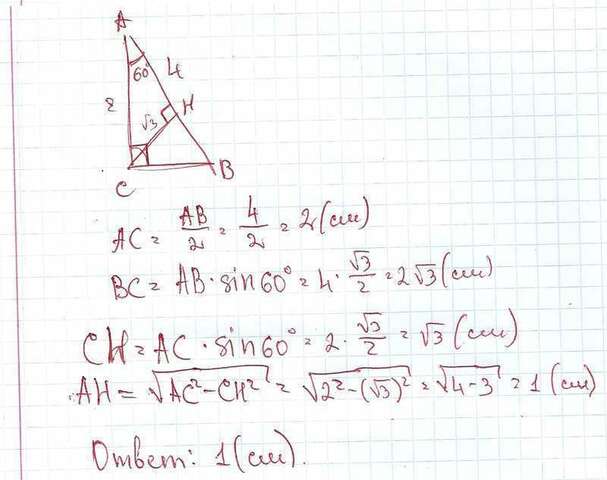 A
60°
4
2
H
√3
C
B
AC = AB/2 = 4/2 = 2 (см)
BC = AB · sin60° = 4 · √3/2 = 2√3 (см)
CH = AC · sin60° = 2 · √3/2 = √3 (см)
AH = √(AC² - CH²) = √(2² - (√3)²) = √(4 - 3) = 1 (см)
Ответ: 1 (см).